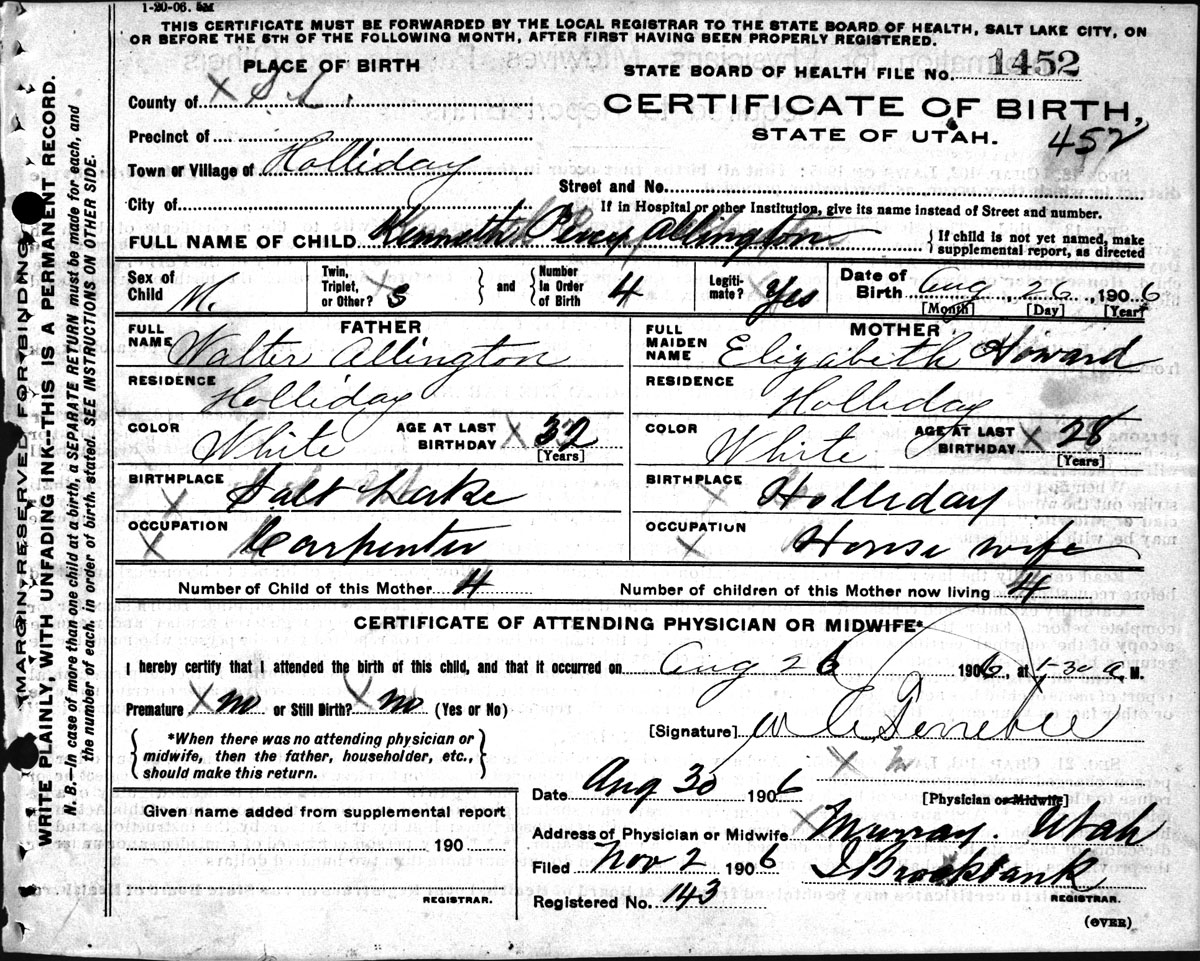 1-20-06. 5M
THIS CERTIFICATE MUST BE FORWARDED BY THE LOCAL REGISTRAR TO THE STATE BOARD OF HEALTH, SALT LAKE CITY, ON
OR BEFORE THE 5TH OF THE FOLLOWING MONTH, AFTER FIRST HAVING BEEN PROPERLY REGISTERED.
PLACE OF BIRTH
STATE BOARD OF HEALTH FILE No. 1452
County of X S L.
CERTIFICATE OF BIRTH,
STATE OF UTAH.
452
Precinct of
Town or Village of Holliday
Street and No.
City of
If in Hospital or other Institution, give its name instead of Street and number.
FULL NAME OF CHILD Kenneth Percy Allington
{ If child is not yet named, make
supplemental report, as directed
Sex of Child M.
Twin, Triplet, or Other? X S } and { Number In Order of Birth 4
Legitimate? X Yes
Date of Birth Aug, 26, 1906
[Month] [Day] [Year]
FATHER
FULL NAME Walter Allington
RESIDENCE Holliday
COLOR White AGE AT LAST BIRTHDAY X 32 [Years]
BIRTHPLACE X Salt Lake
OCCUPATION X Carpenter
MOTHER
FULL MAIDEN NAME Elizabeth Howard
RESIDENCE Holliday
COLOR White AGE AT LAST BIRTHDAY X 28 [Years]
BIRTHPLACE Holliday
OCCUPATION X House wife
Number of Child of this Mother 4 Number of children of this Mother now living 4
CERTIFICATE OF ATTENDING PHYSICIAN OR MIDWIFE*
I hereby certify that I attended the birth of this child, and that it occurred on Aug 26 1906, at 1-30 a M.
Premature X no or Still Birth? X no (Yes or No)
[Signature]
{ *When there was no attending physician or
midwife, then the father, householder, etc.,
should make this return. }
Date Aug 30 1906
[Physician or Midwife]
Given name added from supplemental report
190
REGISTRAR.
Address of Physician or Midwife X Murray. Utah
Filed Nov 2 1906 J Brockbank
Registered No. 143 REGISTRAR.
(OVER)
(MARGIN RESERVED FOR BINDING)
WRITE PLAINLY, WITH UNFADING INK--THIS IS A PERMANENT RECORD.
N. B.—In case of more than one child at a birth, a SEPARATE RETURN must be made for each, and
the number of each, in order of birth, stated. SEE INSTRUCTIONS ON OTHER SIDE.